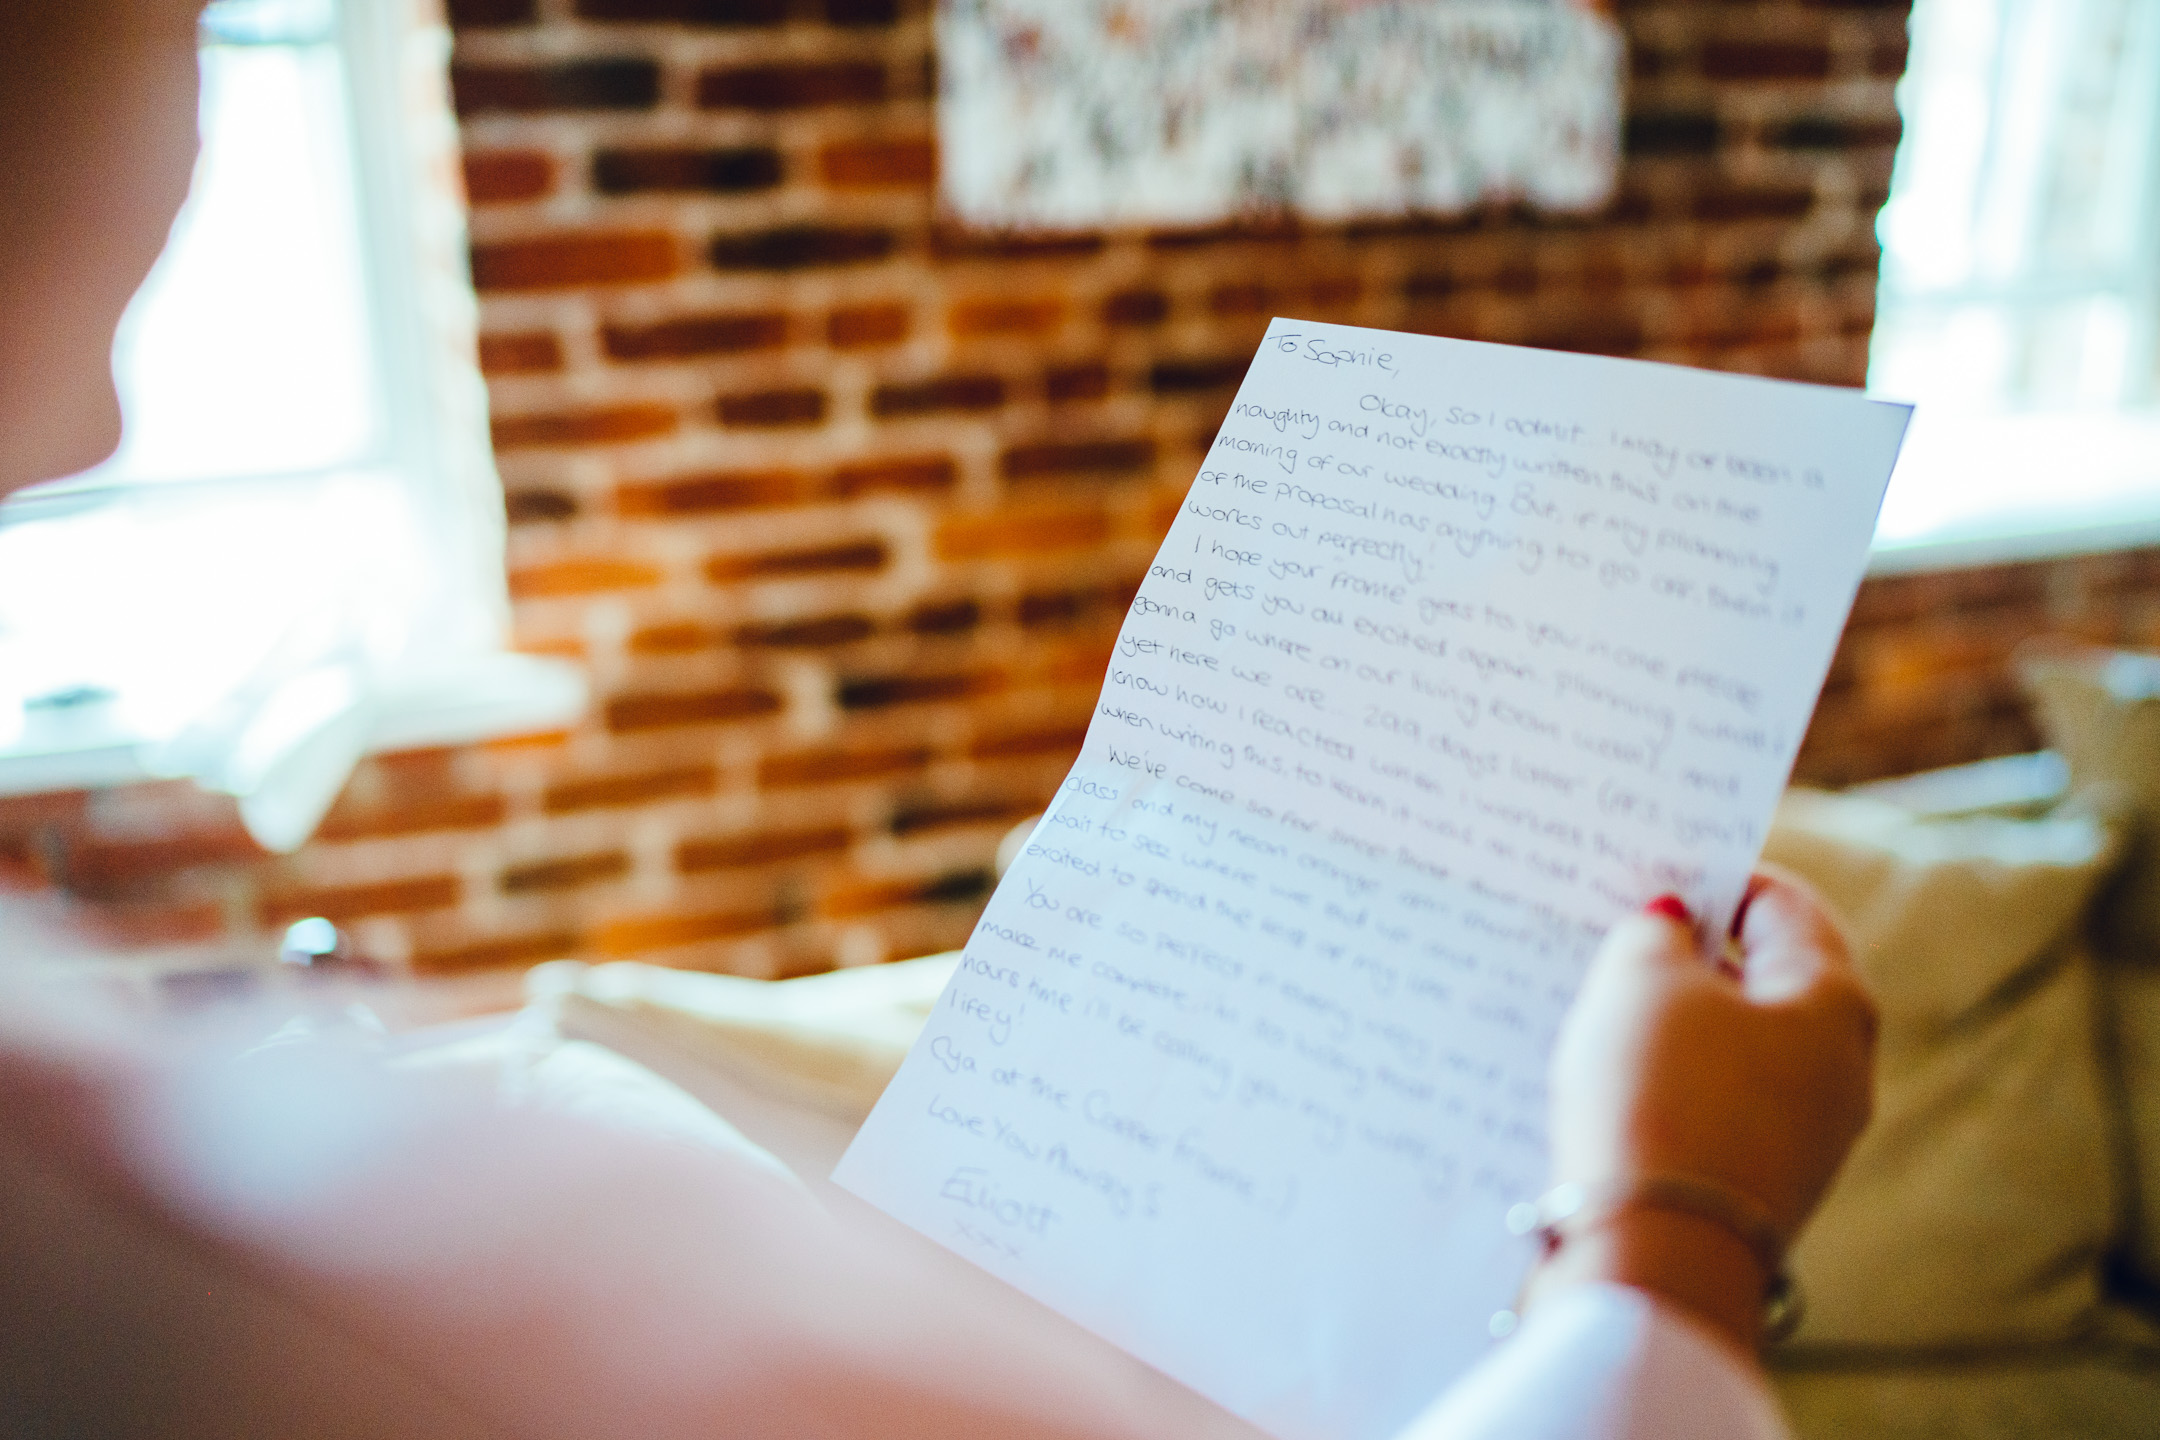 To Sophie,
Okay, so I admit... I may of been a
naughty and not exactly written this on the
morning of our wedding. But, if my planning
of the proposal has anything to go off, then it
works out perfectly!
I hope your frame gets to you in one piece
and gets you all excited again. planning what's
gonna go where on our living room wall), and
yet here we are... days later (P.S. you'll
know how I reacted when I worked this out
when writing this, to learn it was an odd
We've come so far since those
class and my neon orange
wait to see where we end up and
excited to spend the rest of my life with
You are so perfect in every way and
make me complete. I'm so
hours time I'll be calling you my wifey
lifey!
Cya at the Coffee Frame..!
Love You Always
Elliott
xxx